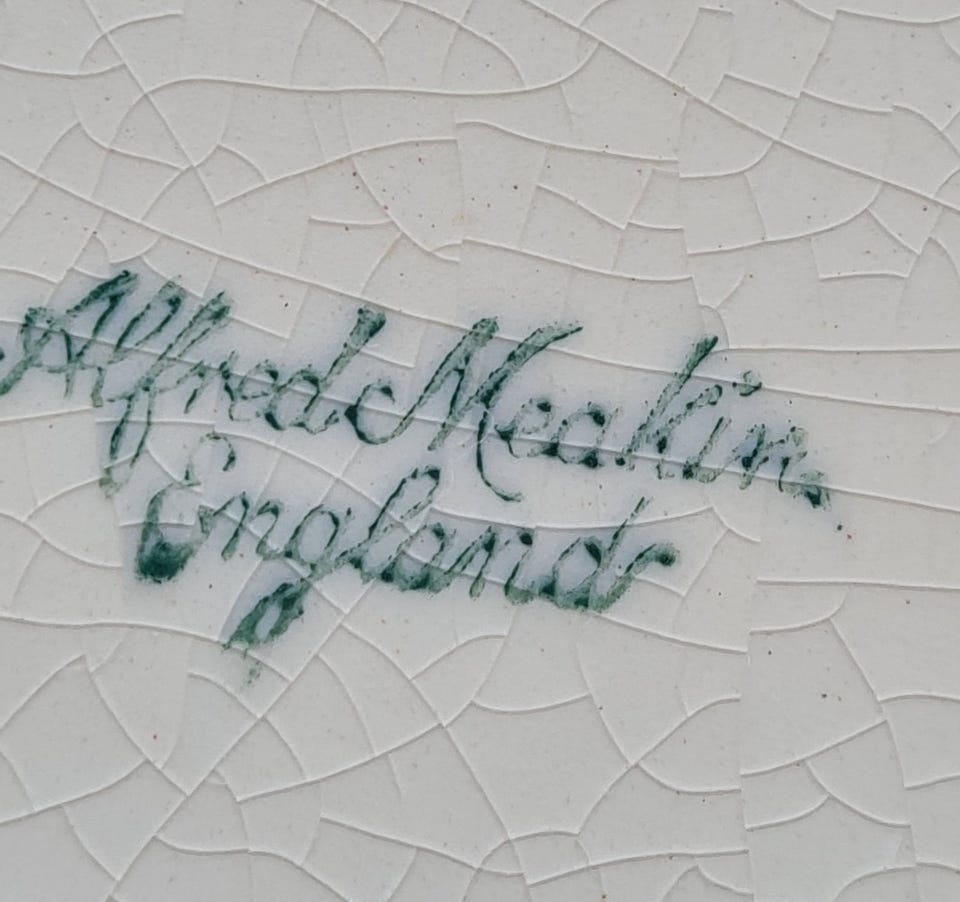 Alfred Meakin
England